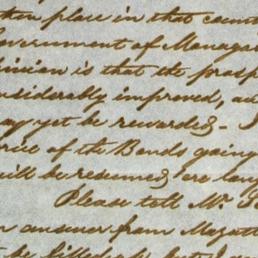 ken place in that count
Government of Managa
pinion is that the prosp
nsiderably improved, an
ay yet be rewarded - I
rice of the Bonds going
will be resumed, ere lon
Please tell Mr.
n answer from Mazatl